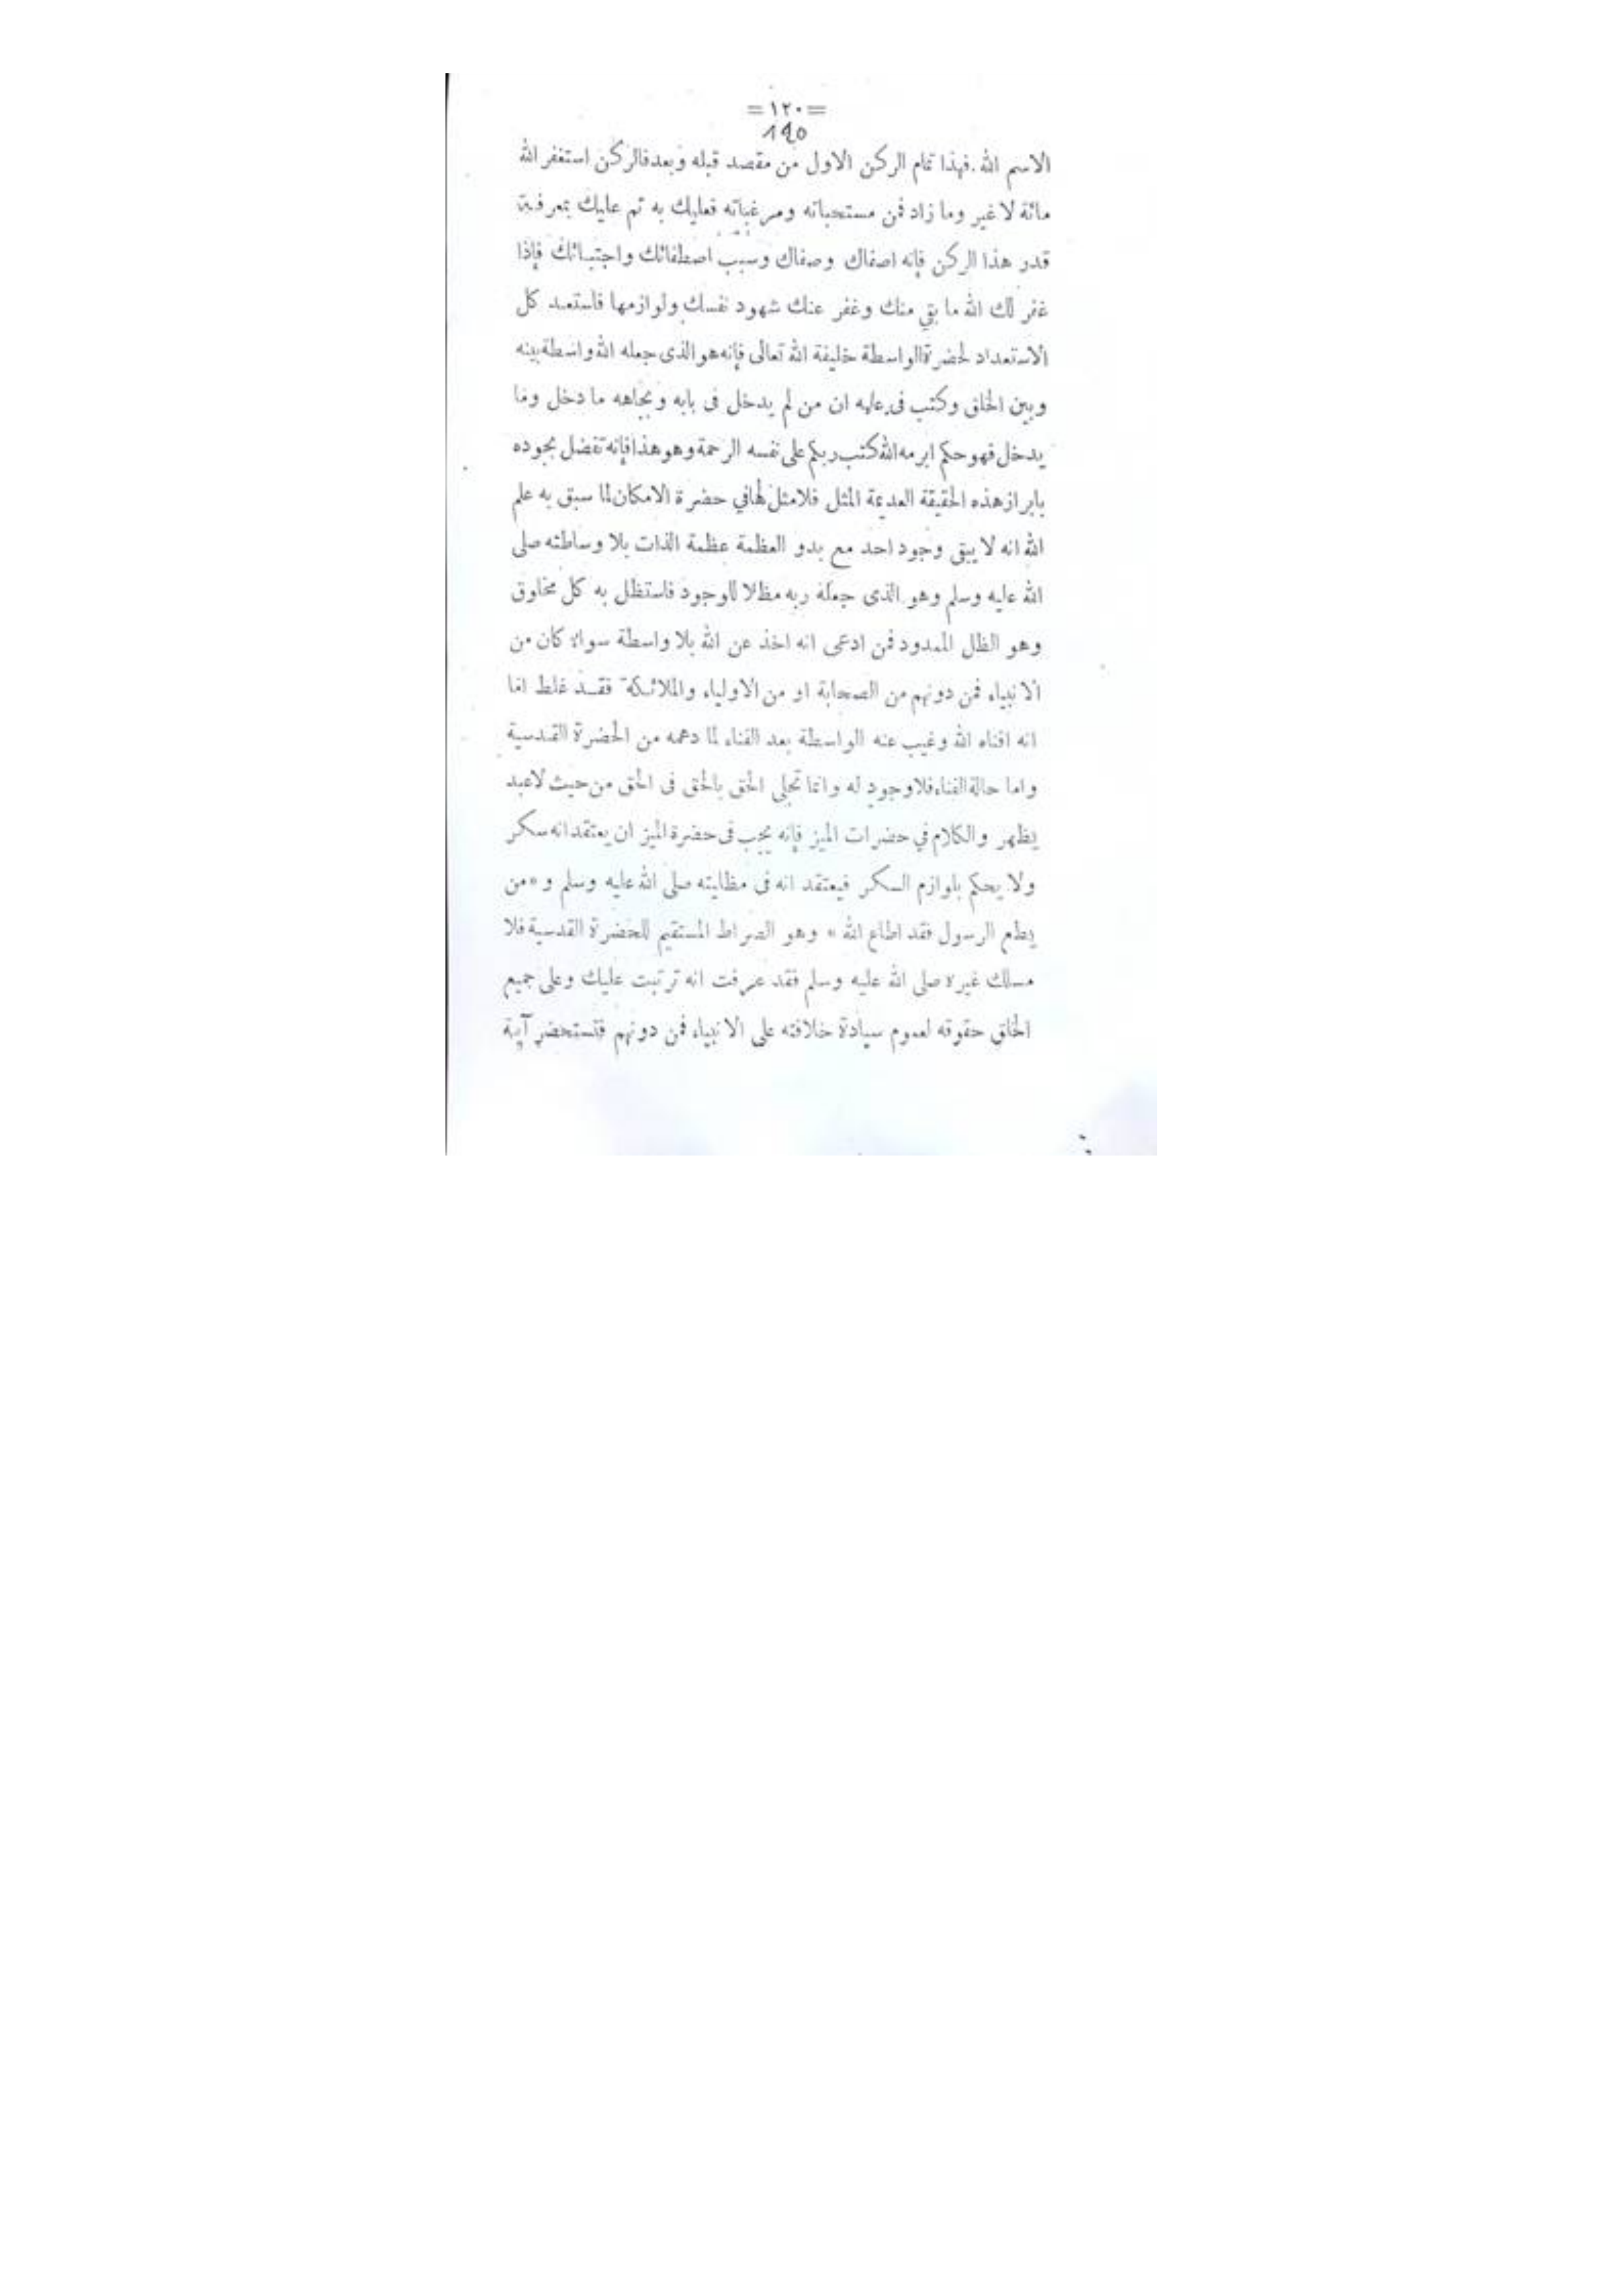 = ١٢٠ =
120
الاسم الله. فهذا تمام الركن الاول من مقصد قبله وبعد فالركن استغفر الله
مائة لا غير وما زاد فمن مستحباته ومرغباته فعليك به ثم عليك بمعرفة
قدر هذا الركن فإنه اصفاك وصفاك وسبب اصطفائك واجتبائك فإذا
غفر لك الله ما بقي منك وغفر عنك شهود نفسك ولوازمها فاستعد كل
الاستعداد لحضرة الواسطة خليفة الله تعالى فإنه هو الذى جعله الله واسطة بينه
وبين الخلق وكتب فى علمه ان من لم يدخل فى بابه وبجاهه ما دخل وما
يدخل فهو حكم ابرمه الله كتب ربكم على نفسه الرحمة وهو هذا فإنه تفضل بجوده
بابراز هذه الحقيقة العديمة المثل فلا مثل لها في حضرة الامكان لما سبق به علم
الله انه لا يبقى وجود احد مع بدو العظمة عظمة الذات بلا وساطته صلى
الله عليه وسلم وهو الذى جعله ربه مظلا للوجود فاستظل به كل مخلوق
وهو الظل الممدود فمن ادعى انه اخذ عن الله بلا واسطة سواء كان من
الانبياء فمن دونهم من الصحابة او من الاولياء والملائكة فقد غلط اما
انه افناه الله وغيب عنه الواسطة بعد الفناء لما دهمه من الحضرة القدسية
واما حالة الفناء فلا وجود له وانما تجلى الحق بالحق فى الحق من حيث لا عبد
يظهر والكلام في حضرات الميز فإنه يجب فى حضرة الميز ان يعتقد انه سكر
ولا يحكم بلوازم السكر فيعتقد انه فى مظليته صلى الله عليه وسلم و «من
يطع الرسول فقد اطاع الله» وهو الصراط المستقيم للحضرة القدسية فلا
مسلك غيره صلى الله عليه وسلم فقد عرفت انه ترتبت عليك وعلى جميع
الخلق حقوقه لعموم سيادة خلافته على الانبياء فمن دونهم فتستحضر آية